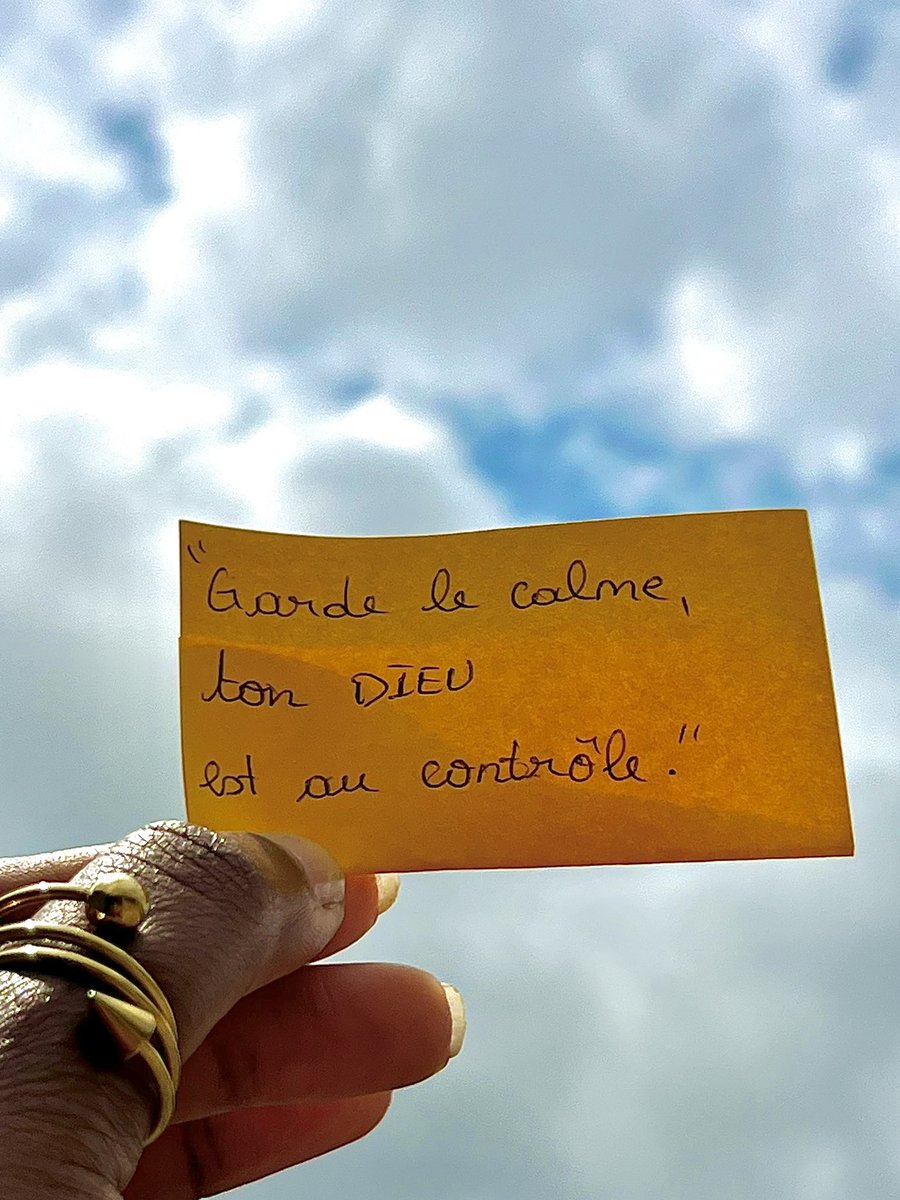 "Garde le calme,
ton DIEU
est au contrôle."